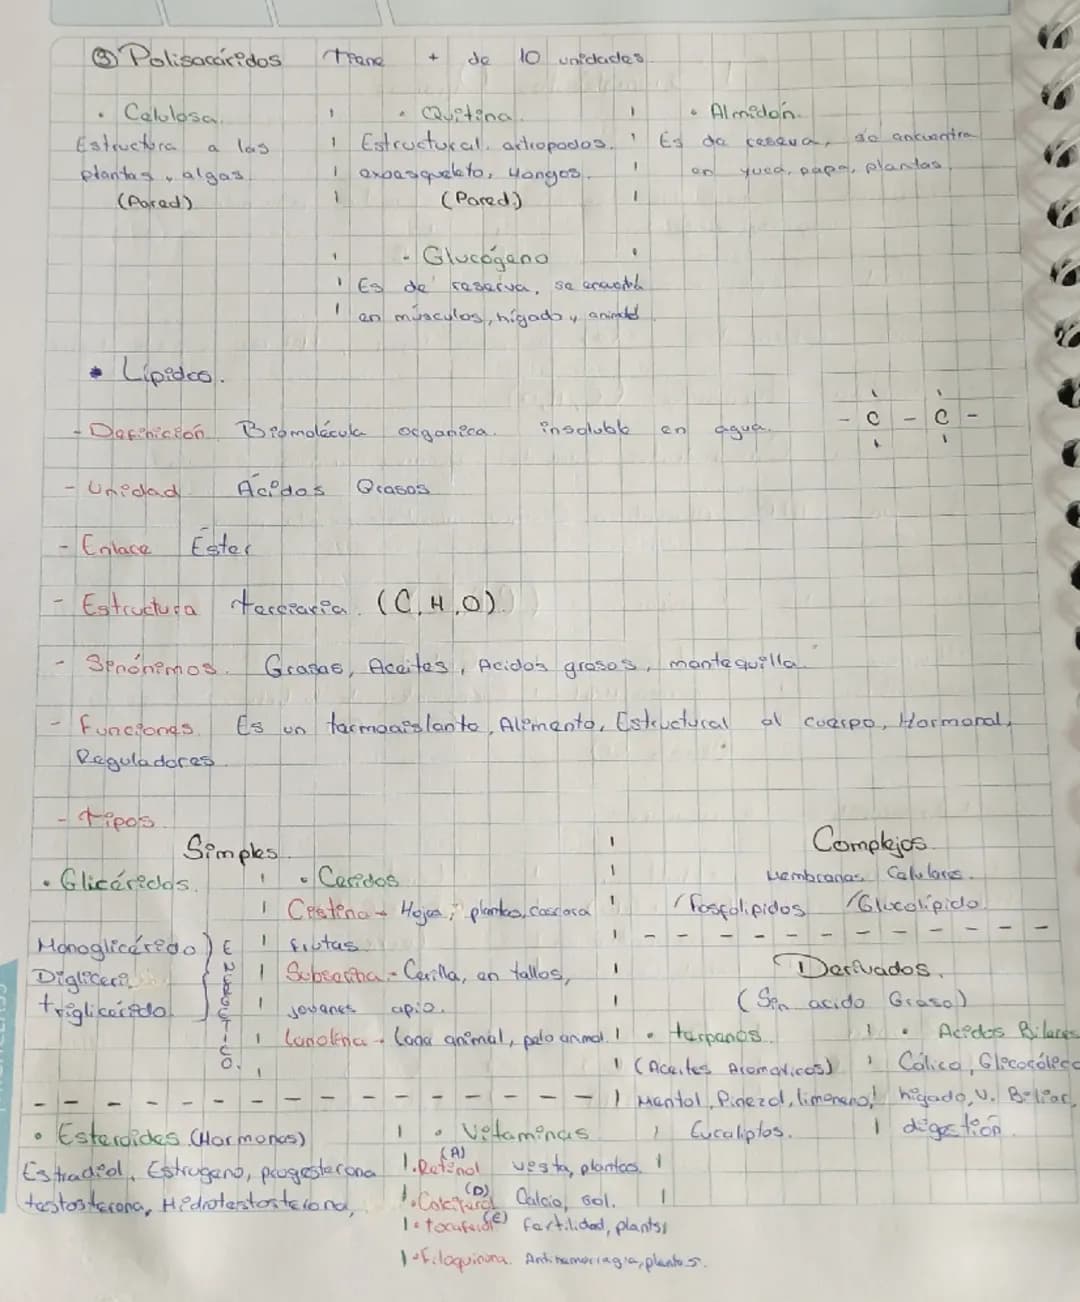 ③ Polisacáridos Tiene + de 10 unidades
• Celulosa.
Estructura a las
plantas y algas.
(Pared)
• Quitina.
Estructural. artropodos.
exoesqueleto, Hongos.
(Pared.)
• Almidón.
Es de reserva, se encuentra
en yuca, papa, plantas.
- Glucógeno
Es de reserva, se
en músculos, hígado y animal
• Lípidos.
- Definición Biomolécula organica. insoluble en agua.
- C - C -
- Unidad Ácidos Grasos
- Enlace Ester
- Estructura terciaria. (C, H, O).
- Sinónimos. Grasas, Aceites, Acidos grasos, mantequilla
- Funciones Es un termoaislante, Alimento, Estructural al cuerpo, Hormonal,
Reguladores
- tipos
Simples.
• Glicéridos.
Monoglicérido
Digliceri
triglicérido
ENERGETICO.
• Ceridos
Cristina → Hojas, plantas, cascara
frutas
Suberina - Cerilla, en tallos,
jovenes apio.
Lanolina → Lana animal, pelo animal.
Complejos
Membranas Celulares.
/ Fosfolipidos / Glucolipido
Derivados.
(Sin acido Graso)
• terpenos.
(Aceites Aromaticos)
Mentol, Pinezol, limoneno,
Eucaliptos.
• Acidos Biliares
Cólico, Glicocólico
hígado, V. Biliar,
digestión
• Esteroides (Hormonas)
Estradiol, Estrogeno, progesterona
testosterona, Hidrotestosterona,
• Vitaminas
(A)
• Retinol vista, plantas
(D)
• Calciferol Calcio, sol.
• tocoferol (E) fertilidad, plantas
• Filoquinona. Antihemorragia, plantas.